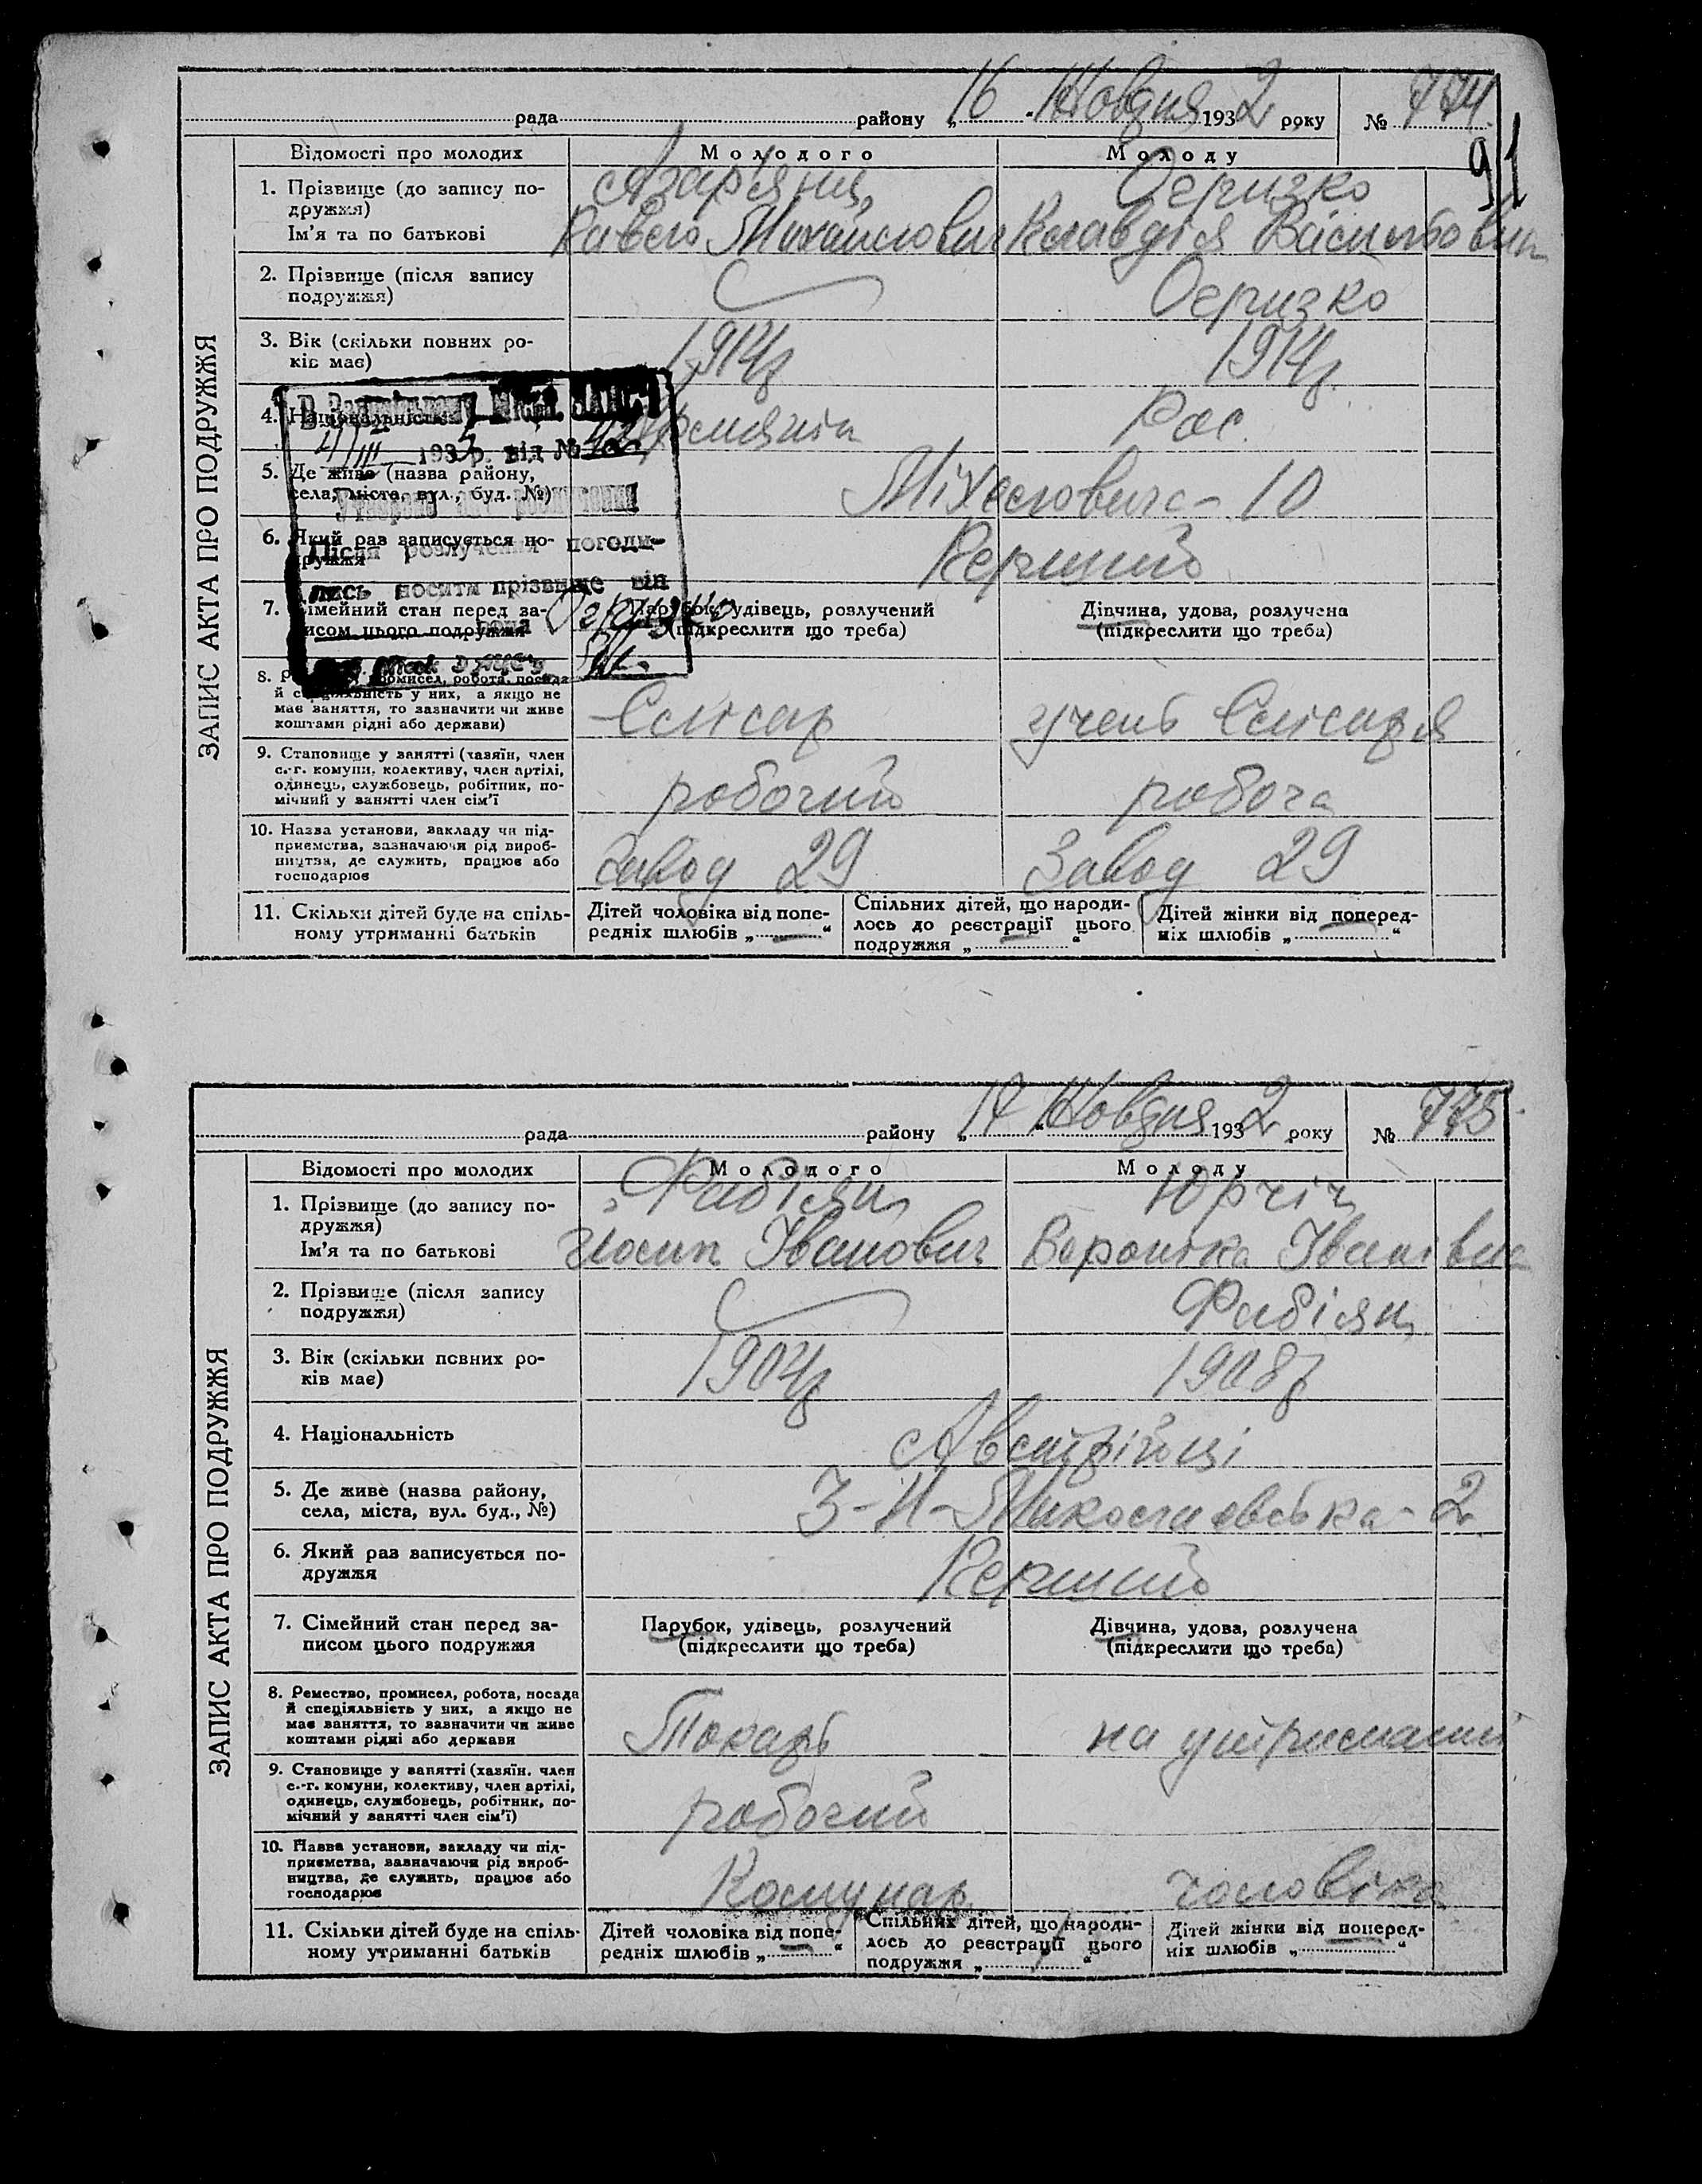 рада району „16" Жовдня 1932 року № 774.
91
ЗАПИС АКТА ПРО ПОДРУЖЖЯ
Відомості про молодих Молодого Молоду
1. Прізвище (до запису по- Азар'янц Огризко
дружжя)
Ім'я та по батькові Павло Михайлович Клавдія Васильовна
2. Прізвище (після запису Огризко
подружжя)
3. Вік (скільки повних ро- 1914р 1914р.
ків має)
4. Національність Арменін Рос.
193 р. від №
5. Де живе (назва району, Міхеловича - 10
села, міста, вул., буд. №)
6. Який раз записується по- Перший
дружжя
Після розлучення погоди-
лись носити прізвище він
7. Сімейний стан перед за- Парубок, удівець, розлучений Дівчина, удова, розлучена
писом цього подружжя (підкреслити що треба) (підкреслити що треба)
вона Огризко
8. промисел, робота, посада
й спеціяльність у них, а якщо не Слісар учень Слісаря
має заняття, то зазначити чи живе
коштами рідні або держави)
9. Становище у занятті (хазяїн, член
с.-г. комуни, колективу, член артілі, робочий робоча
одинець, службовець, робітник, по-
мічний у занятті член сім'ї
10. Назва установи, закладу чи під-
приємства, зазначаючи рід вироб- Завод 29 Завод 29
ництва, де служить, працює або
господарює
11. Скільки дітей буде на спіль- Дітей чоловіка від попе- Спільних дітей, що народи- Дітей жінки від поперед-
ному утриманні батьків редніх шлюбів „—“ лось до реєстрації цього ніх шлюбів „ “
подружжя „ “
рада району „17" Жовдня 1932 року № 775.
ЗАПИС АКТА ПРО ПОДРУЖЖЯ
Відомості про молодих Молодого Молоду
1. Прізвище (до запису по- Фабіян Юрчіч
дружжя)
Ім'я та по батькові Йосип Іванович Вероніка Іванівна
2. Прізвище (після запису Фабіян
подружжя)
3. Вік (скільки повних ро- 1904р 1908р
ків має)
4. Національність Австрійці
5. Де живе (назва району, З-Н-Миколаевська - 2
села, міста, вул. буд., №)
6. Який раз записується по- Перший
дружжя
7. Сімейний стан перед за- Парубок, удівець, розлучений Дівчина, удова, розлучена
писом цього подружжя (підкреслити що треба) (підкреслити що треба)
8. Ремество, промисел, робота, посада
й спеціяльність у них, а якщо не Токарь на утриманні
має заняття, то зазначити чи живе
коштами рідні або держави
9. Становище у занятті (хазяїн. член
с.-г. комуни, колективу, член артілі, робочий
одинець, службовець, робітник, по-
мічний у занятті член сім'ї)
10. Назва установи, закладу чи під-
приємства, зазначаючи рід вироб- Комунар чоловіка
ництва, де служить, працює або
господарює
11. Скільки дітей буде на спіль- Дітей чоловіка від попе- Спільних дітей, що народи- Дітей жінки від поперед-
ному утриманні батьків редніх шлюбів „—“ лось до реєстрації цього ніх шлюбів „ “
подружжя „ “